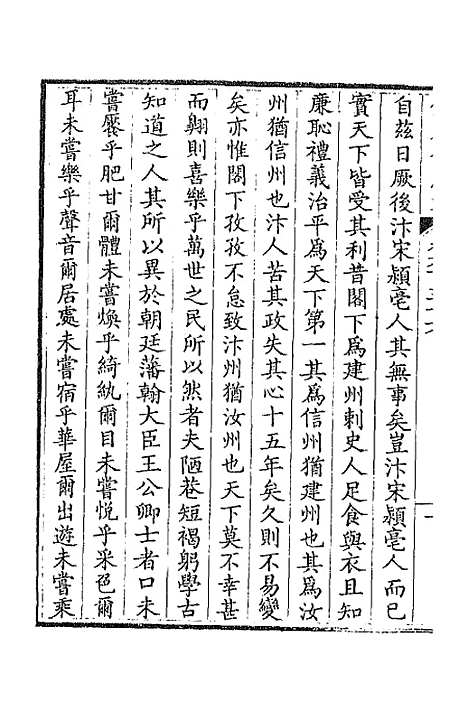 自茲日厥後汴宋潁亳人其無事矣豈汴宋潁亳人而已
實天下皆受其利昔閣下爲建州刺史人足食與衣且知
廉恥禮義治平爲天下第一其爲信州猶建州也其爲汝
州猶信州也汴人苦其政失其心十五年矣久則不易變
矣亦惟閣下孜孜不怠致汴州猶汝州也天下莫不幸甚
而翺則喜樂乎萬世之民所以然者夫陋巷短褐躬學古
知道之人其所以異於朝廷藩翰大臣王公卿士者口未
嘗饜乎肥甘爾體未嘗煥乎綺紈爾目未嘗悅乎采色爾
耳未嘗樂乎聲音爾居處未嘗宿乎華屋爾出遊未嘗乘